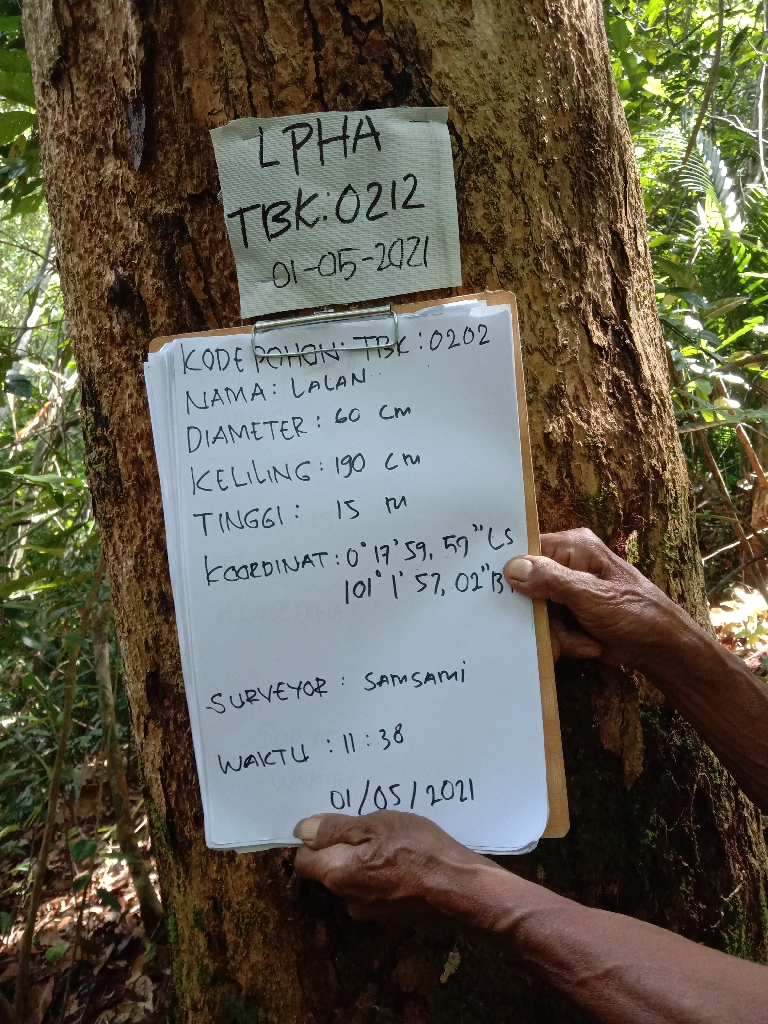 LPHA
TBK: 0212
01-05-2021
KODE POHON: TBK: 0202
NAMA: LALAN
DIAMETER: 60 cm
KELILING: 190 cm
TINGGI: 15 m
KOORDINAT: 0° 17' 59, 59" LS
101° 1' 57, 02" B
SURVEYOR: SAMSAMI
WAKTU: 11:38
01/05/2021